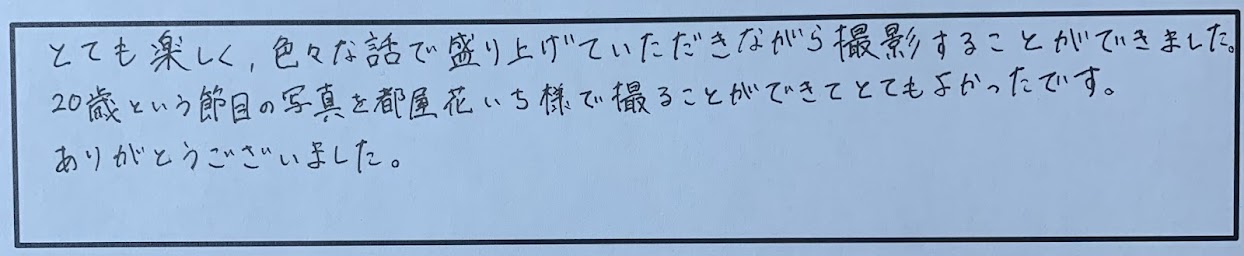 とても楽しく,色々な話で盛り上げていただきながら撮影することができました。
20歳という節目の写真を都屋花いち様で撮ることができてとてもよかったです。
ありがとうございました。